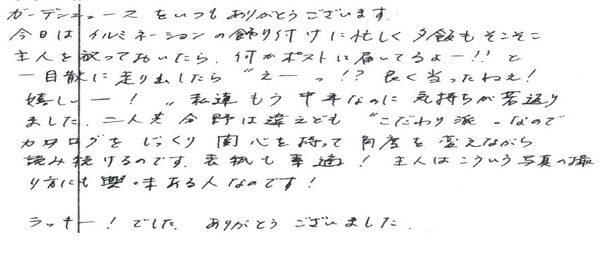 ガーデンニュースをいつもありがとうございます.
今日はイルミネーションの飾り付けに忙しく夕飯もそこそこ
主人を放っておいたら、何かポストに届いてるよー!!と
一目散に走り出したら〝えーっ!? 良く当ったねえ!
嬉しーー!〟私達もう中年なのに気持ちが若返り
ました. 二人共分野は違えども〝こだわり派〟なので
カタログをじっくり関心を持って角度を変えながら
読み続けるのです. 表紙も素適! 主人はこういう写真の撮
り方にも興味ある人なのです!
ラッキー!でした. ありがとうございました.